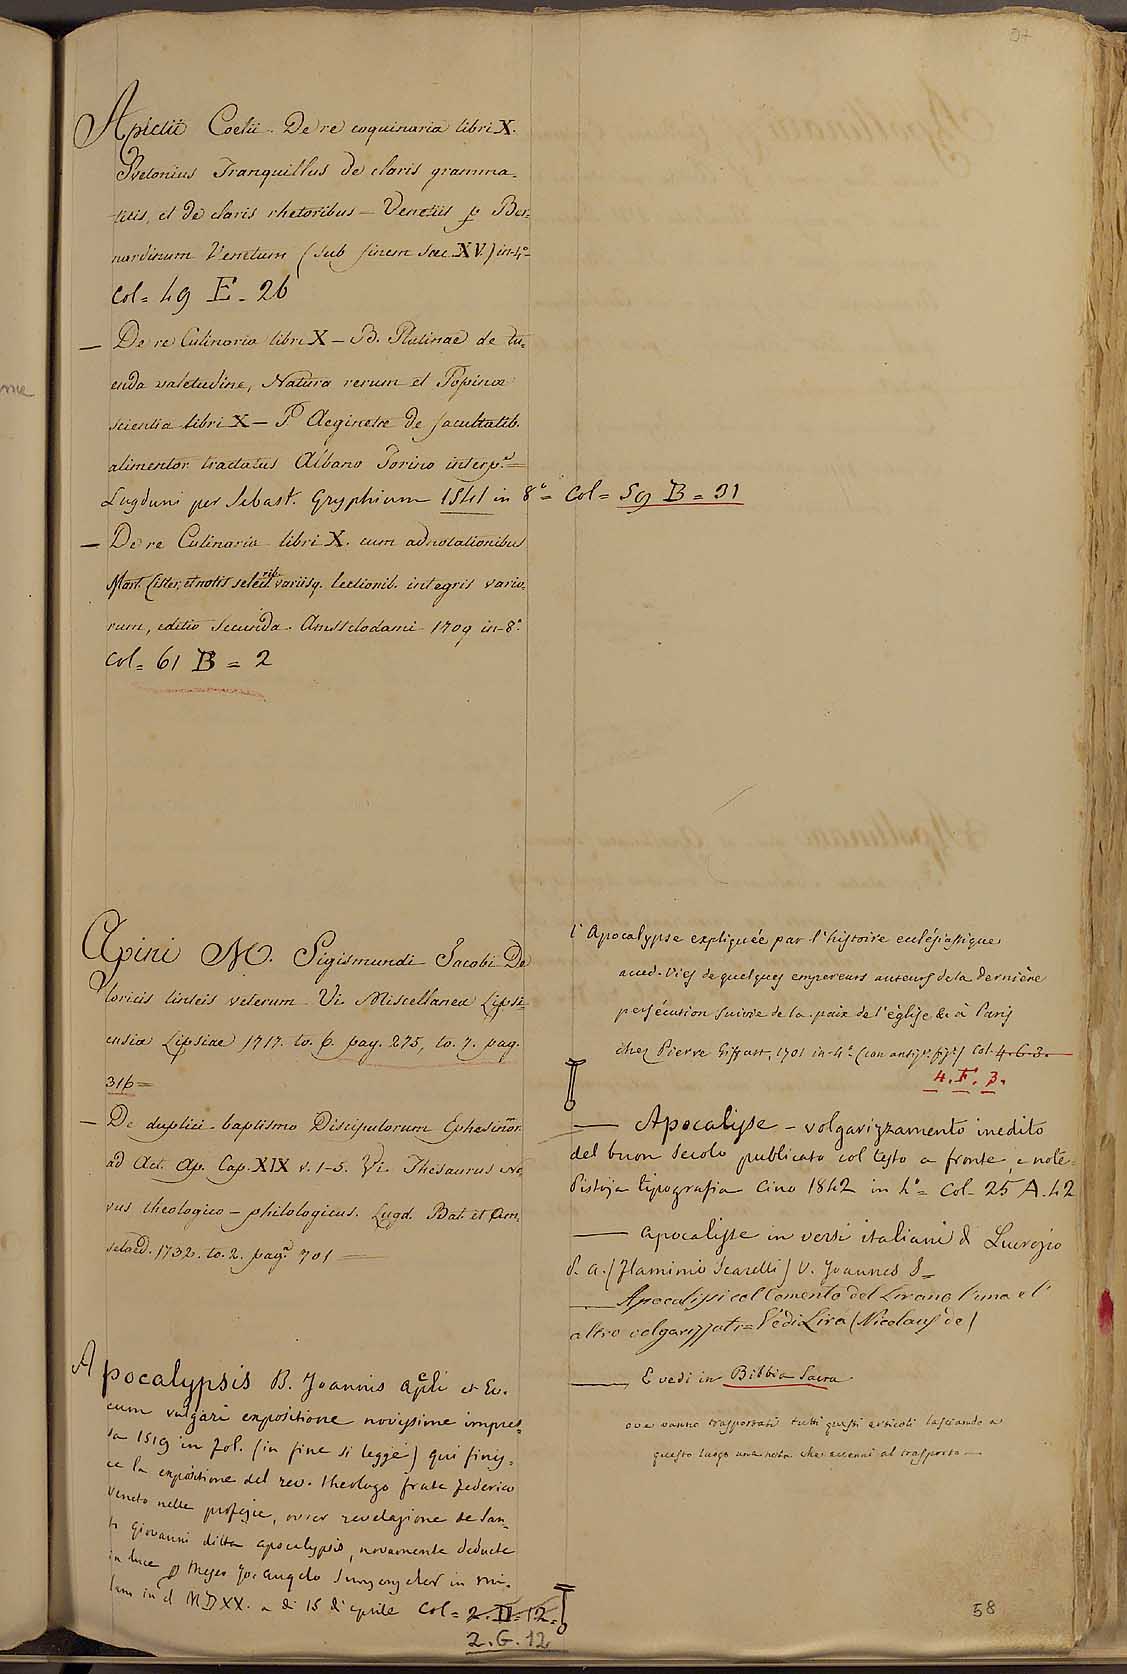 Apicii Coelii. De re coquinaria libri X.
Svetonius Tranquillus de claris gramma-
ticis, et de claris rhetoribus – Venetiis p Ber-
nardinum Venetum (sub finem saec. XV.) in-4°
Col= 49 E - 26
— De re Culinaria libri X – B. Platinae de tu-
enda valetudine, Natura rerum et Popinae
scientia libri X – P Aeginetae de facultatib.
alimentor. tractatus Albano Torino interp.e=
Lugduni per Sebast. Gryphium 1541 in 8°= Col= 59 B = 31
— De re Culinaria libri X. cum adnotationibus
Mart. Lister, et notis selectrib. variisq. lectionib. integris vario-
rum, editio secunda. Amstelodami 1709 in-8°
Col= 61 B = 2
Apini M. Sigismundi Jacobi De
loricis linteis veterum Vi. Miscellanea Lipsi-
ensia Lipsiae 1717. to. 6. pag. 275, to. 7. pag.
316=
— De duplici baptismo Discipulorum Ephesinor.
ad Act. Ap. Cap. XIX v. 1-5. Vi. Thesaurus No-
vus theologico – philologicus. Lugd. Bat. et Am-
stelaed. 1732. to. 2. pag.a 701 —
Apocalypsis B. Joannis apli et Ev.
cum vulgari expositione novissime impres-
sa 1519 in fol. (in fine si legge) qui finis-
ce la expositione del rev. theologo frate Federico
Veneto nelle profezie, over revelazione de San-
to Giovanni ditta apocalypsis, novamente deducte
in luce p Meser Jo: angelo in mi-
lano in el MDXX. a di 15 di aprile Col= 2. D = 12.
2. G. 12
l'Apocalypse expliquée par l'histoire ecclésiastique
aued. Vies de quelques empereurs auteurs de la dernière
persécution suivie de la paix de l'église &c à Paris
chez Pierre Giffart, 1701 in-4° (con antip.e fig.e) Col. 4. G. 3.
4. F. 3.
— Apocalisse – volgarizzamento inedito
del buon secolo publicato col testo a fronte, e note-
Pistoja tipografia Cino 1842 in 4°= Col- 25 A. 42
— Apocalisse in versi italiani di Lucrezio
P. a. (Flaminio Scarelli) V. Joannes S=
— Apocalissi col Comento del Lirano l'una e l'
altro volgarizzati= Vedi Lira (Nicolaus de)
— E vedi in Bibbia Sacra
ove vanno trasportati tutti questi articoli lasciando a
questo luogo una nota che accenni al trasporto —
58